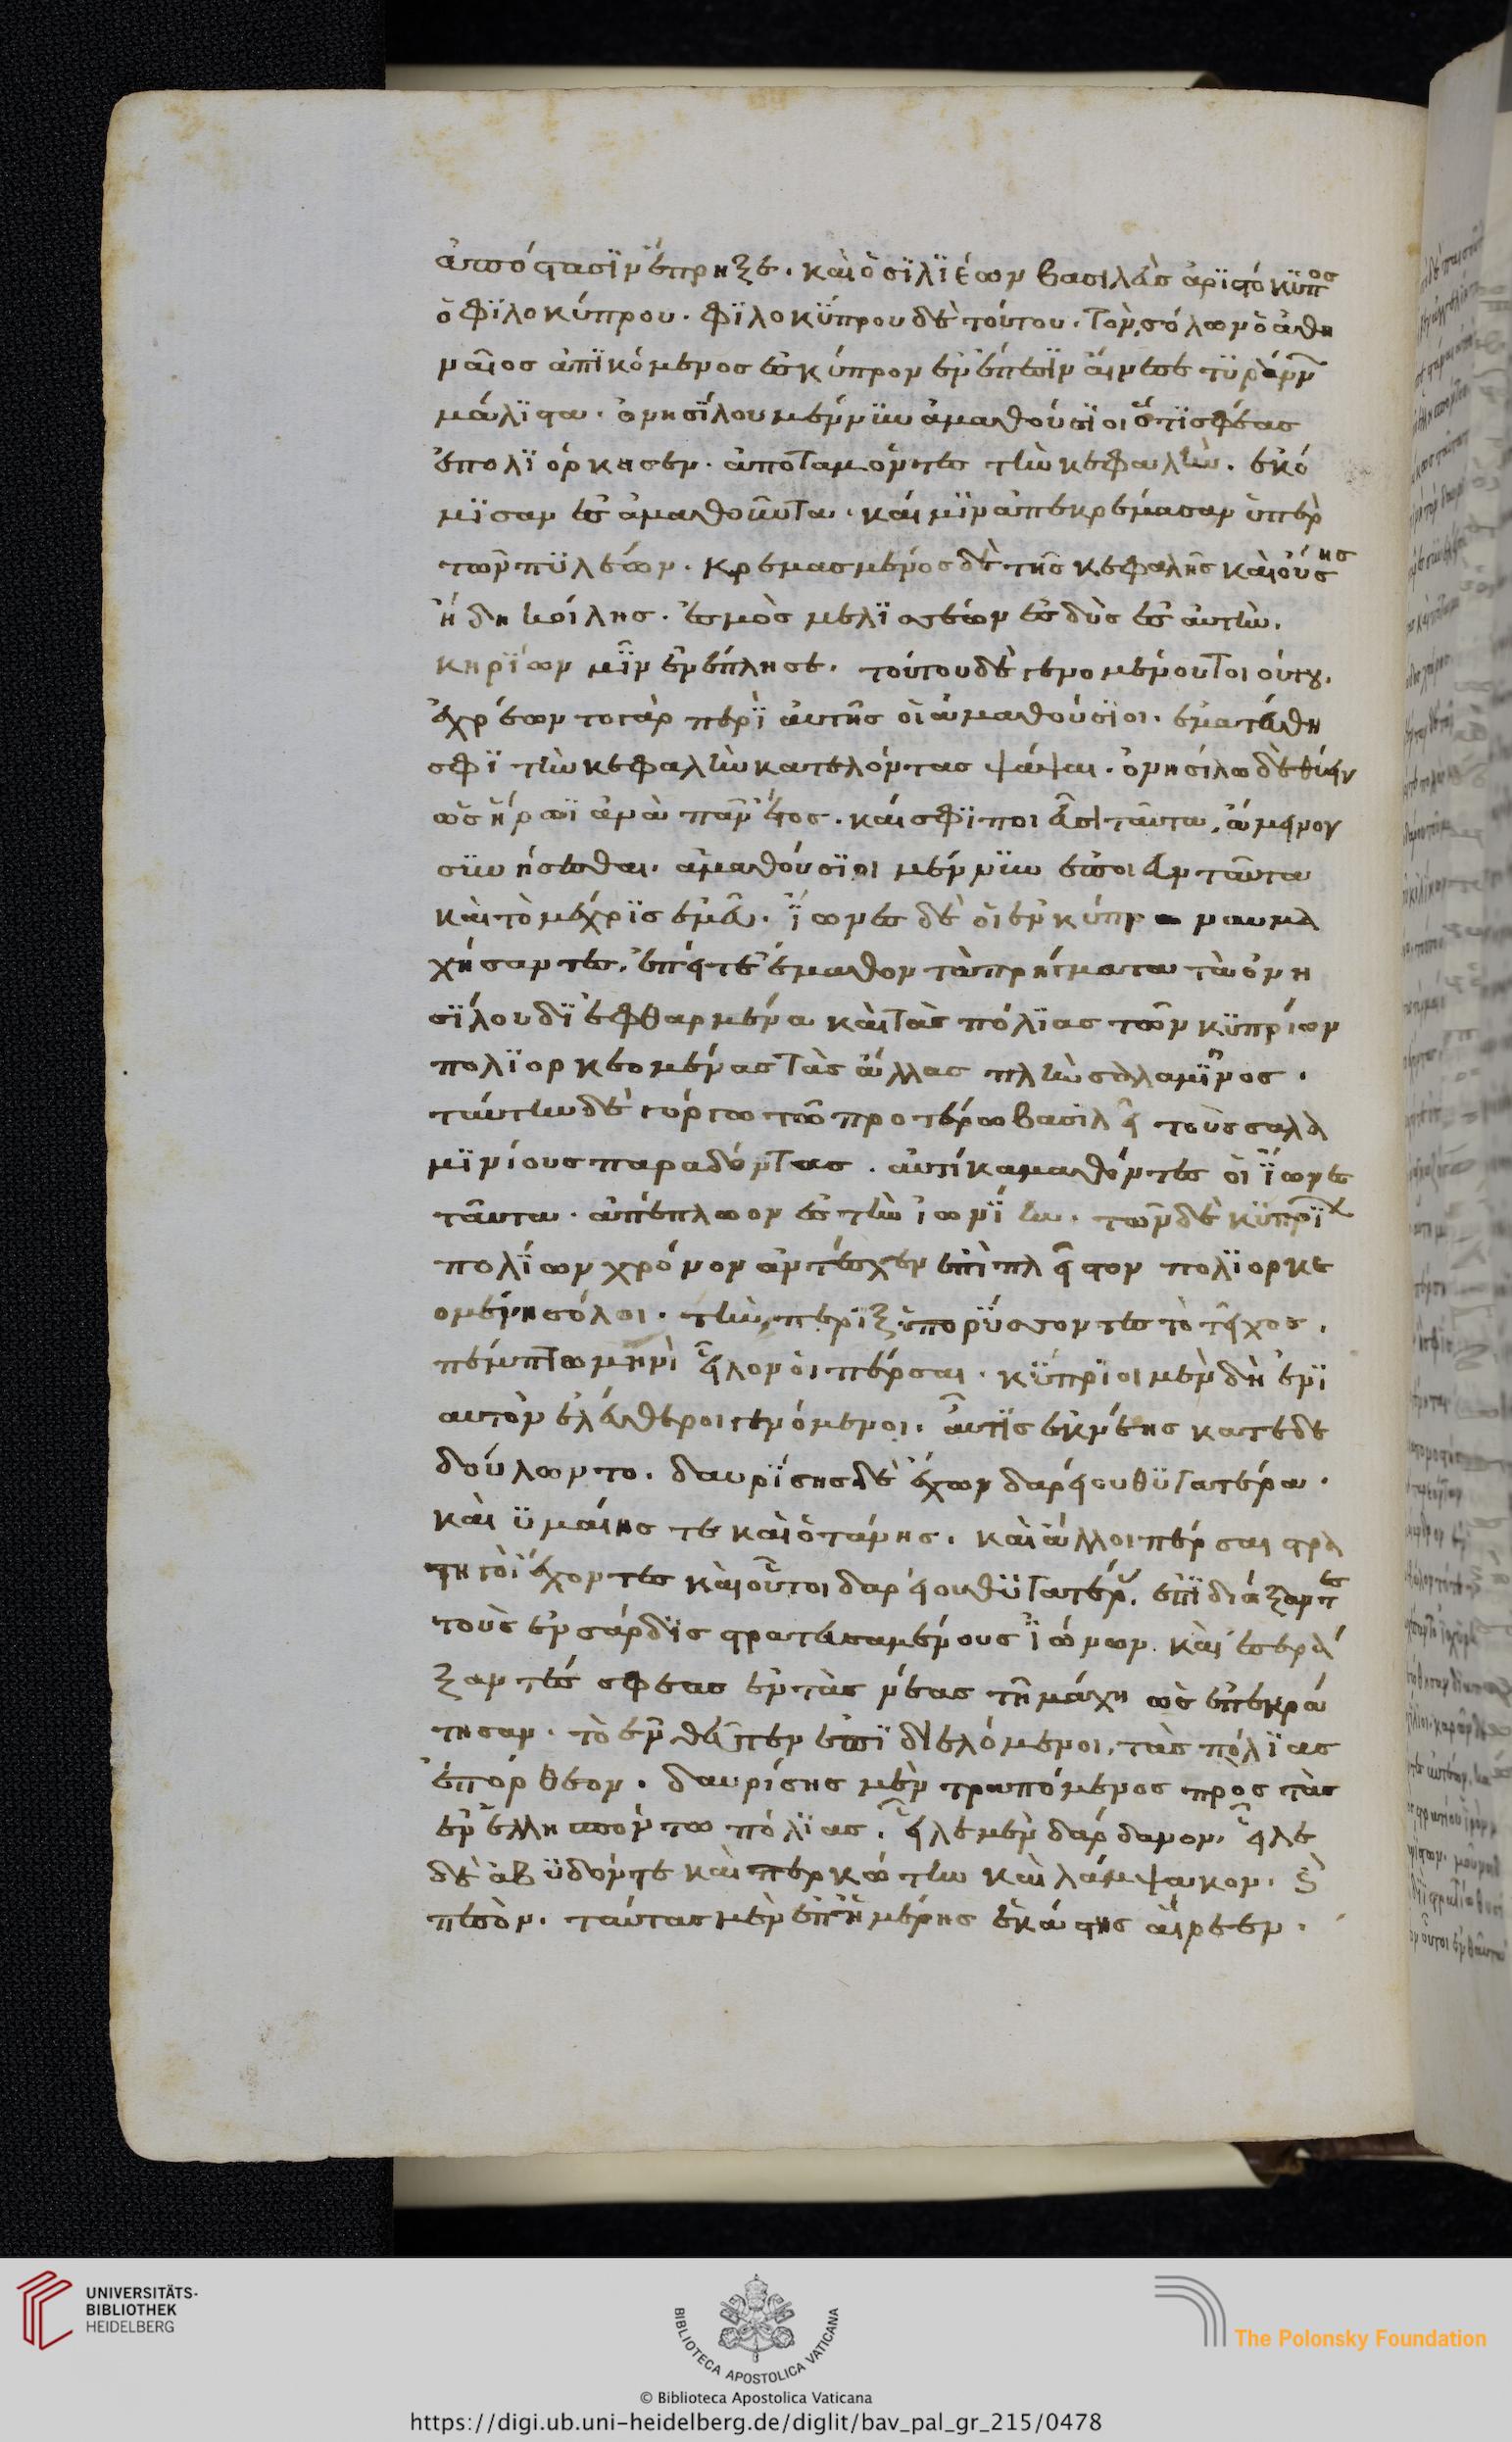 ἀπόστασϊν ἔπρηξε. καὶ ὁ σϊλϊέων βασιλεὺς ἀρϊστόκϋπος
ὁ φϊλοκύπρου. φϊλοκϋπρου δὲ τούτου. τὸν σόλων ὁ ἀθη
ναῖος ἀπϊκόμενος ἐς κύπρον ἐν ἔπεσϊν αἴνεσε τϋράνν
μάλϊστα. ὀνησΐλου μέν νϋν ἀμαθούσϊοι ὅτϊ σφέας
ἐπολϊόρκησεν. ἀποταμόντες τὴν κεφαλὴν. ἐκό
μϊσαν ἐς ἀμαθοῦντα. καί μϊν ἀπεκρέμασαν ὑπὲρ
τῶν πϋλέων. κρεμαμένος δὲ τῆς κεφαλῆς καὶ οὔσης
ἤδη κοίλης. ἑσμὸς μελϊσσέων ἐσδὺς ἐς αὐτὴν.
κηρΐων μῒν ἐνέπλησε. τούτου δὲ γενομένου τοιούτου.
ἐχρέωντο γὰρ περὶ αὐτῆς οἱ ἀμαθούσϊοι. ἐμαντεύθη
σφϊ τὴν κεφαλὴν κατελόντας θάψαι. ὀνησίλω δὲ θύειν
ὡς ἥρωϊ ἀνὰ πᾶν ἔτος. καί σφϊ ποιεῦσι ταῦτα, ἄμεινον
συνήσεσθαι. ἀμαθούσϊοι μέν νϋν ἐποιευν ταῦτα
καὶ τὸ μέχρϊς ἐμεῦ. ἴωνες δὲ οἱ ἐν κύπρω ναυμα
χήσαντες, ἐπείτε ἔμαθον τὰ πρήγματα τὰ ὀνη
σΐλου δϊεφθαρμένα καὶ τὰς πόλϊας τῶν κϋπρίων
πολϊορκεομένας τὰς ἄλλας πλὴν σαλαμῖνος.
ταύτην δὲ γόργω τῶ προτέρω βασιλεῖ τοὺς σαλα
μϊνίους παραδόντας. αὐτίκα μαθόντες οἱ ἴωνες
ταῦτα. ἀπέπλωον ἐς τὴν ἰωνΐην. τῶν δὲ κϋπρΐω
πολΐων χρόνον ἀντέσχεν ἐπὶ πλεῖστον πολϊορκε
ομένη σόλοι. τὴν πέρϊξ ὑπορΰσσοντες τὸ τεῖχος.
πέμπτω μηνὶ εἷλον οἱ πέρσαι. κΰπρϊοι μὲν δὴ ἐνϊ
αυτὸν ἐλεύθεροι γενόμενοι. αὖτϊς ἐκ νέης κατεδε
δούλωντο. δαυρΐσης δὲ ἔχων δαρείου θϋγατέρα.
καὶ ϋμαίης τε καὶ ὀτάνης. καὶ ἄλλοι πέρσαι στρα
τηγοὶ ἔχοντες καὶ οὗτοι δαρείου θϋγατέρ. ἐπϊδιώξαντες
τοὺς ἐν σάρδϊς στρατευσαμένους ἰώνων. καὶ ἐσερά
ξαντές σφεας ἐν τὰς νέας τῆ μάχη ὡς ἐπεκρά
τησαν. τὸ ἐνθεῦτεν ἐπϊδιελόμενοι, τὰς πόλϊας
ἐπόρθεον. δαυρίσης μὲν τραπόμενος πρὸς τὰς
ἐν ἑλλησπόντω πόλϊας. εἷλε μὲν δάρδανον, εἷλε
δὲ ἀβϋδόν τε καὶ περκώτην καὶ λάμψακον. ϗ
πεσὸν. ταύτας μὲν ἐπ' ἡμέρης ἑκάστης αἵρεεν.
UNIVERSITÄTS-
BIBLIOTHEK
HEIDELBERG
BIBLIOTECA APOSTOLICA VATICANA
The Polonsky Foundation
© Biblioteca Apostolica Vaticana
https://digi.ub.uni-heidelberg.de/diglit/bav_pal_gr_215/0478